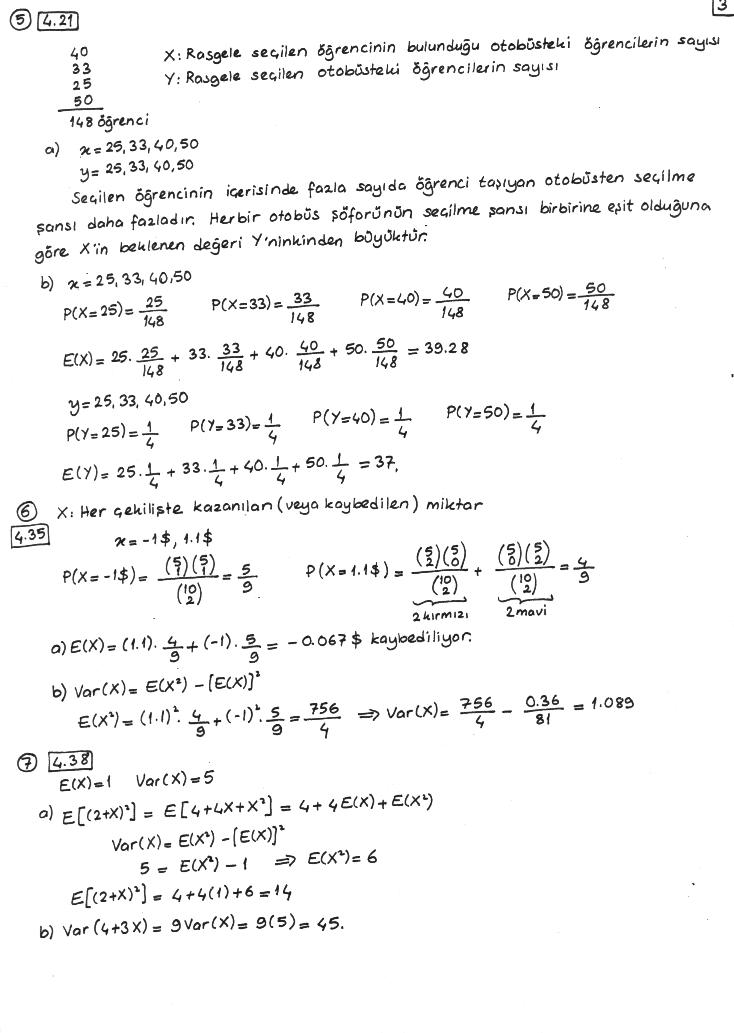 3
⑤ 4.21
40 X: Rasgele seçilen öğrencinin bulunduğu otobüsteki öğrencilerin sayısı
33 Y: Rasgele seçilen otobüsteki öğrencilerin sayısı
25
50
148 öğrenci
a) x = 25, 33, 40, 50
y = 25, 33, 40, 50
Seçilen öğrencinin içerisinde fazla sayıda öğrenci taşıyan otobüsten seçilme
şansı daha fazladır. Herbir otobüs şöförünün seçilme şansı birbirine eşit olduğuna
göre X'in beklenen değeri Y'ninkinden büyüktür.
b) x = 25, 33, 40, 50
P(X=25) = 25/148 P(X=33) = 33/148 P(X=40) = 40/148 P(X=50) = 50/148
E(X) = 25. 25/148 + 33. 33/148 + 40. 40/148 + 50. 50/148 = 39.28
y = 25, 33, 40, 50
P(Y=25) = 1/4 P(Y=33) = 1/4 P(Y=40) = 1/4 P(Y=50) = 1/4
E(Y) = 25. 1/4 + 33. 1/4 + 40. 1/4 + 50. 1/4 = 37,
⑥ X: Her çekilişte kazanılan (veya kaybedilen) miktar
4.35 x = -1$, 1.1$
P(X = -1$) = (5 1)(5 1)/(10 2) = 5/9 P(X = 1.1$) = (5 2)(5 0)/(10 2) + (5 0)(5 2)/(10 2) = 4/9
2 kırmızı 2 mavi
a) E(X) = (1.1). 4/9 + (-1). 5/9 = -0.067 $ kaybediliyor.
b) Var(X) = E(X²) - [E(X)]²
E(X²) = (1.1)². 4/9 + (-1)². 5/9 = 756/4 ⇒ Var(X) = 756/4 - 0.36/81 = 1.089
⑦ 4.38
E(X) = 1 Var(X) = 5
a) E[(2+X)²] = E[4+4X+X²] = 4 + 4E(X) + E(X²)
Var(X) = E(X²) - [E(X)]²
5 = E(X²) - 1 ⇒ E(X²) = 6
E[(2+X)²] = 4+4(1)+6 = 14
b) Var(4+3X) = 9Var(X) = 9(5) = 45.